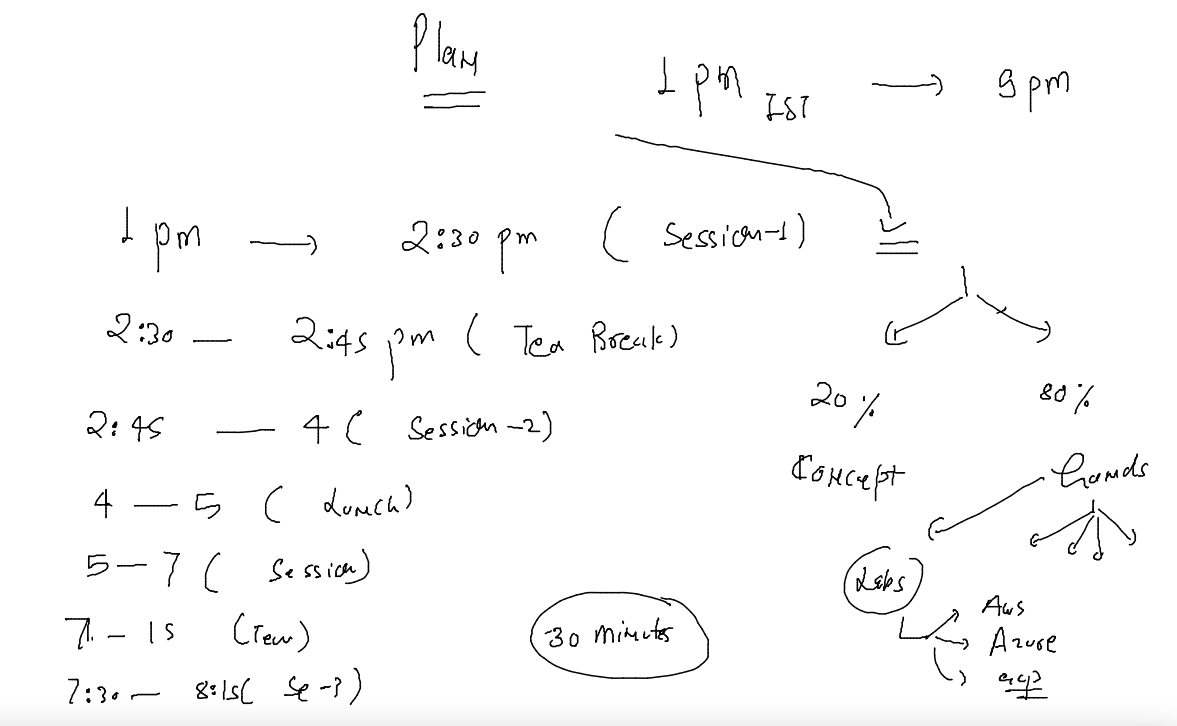 Plan
1 pm IST → 9 pm
1 pm → 2:30 pm ( Session-1)
2:30 — 2:45 pm ( Tea Break)
2:45 — 4 ( Session-2)
4 — 5 ( Lunch)
5 — 7 ( Session)
7 — 15 (Tea)
7:30 — 8:15( Se-3)
30 minutes
20% 80%
Concept hands
Labs
Aws
Azure
gcp